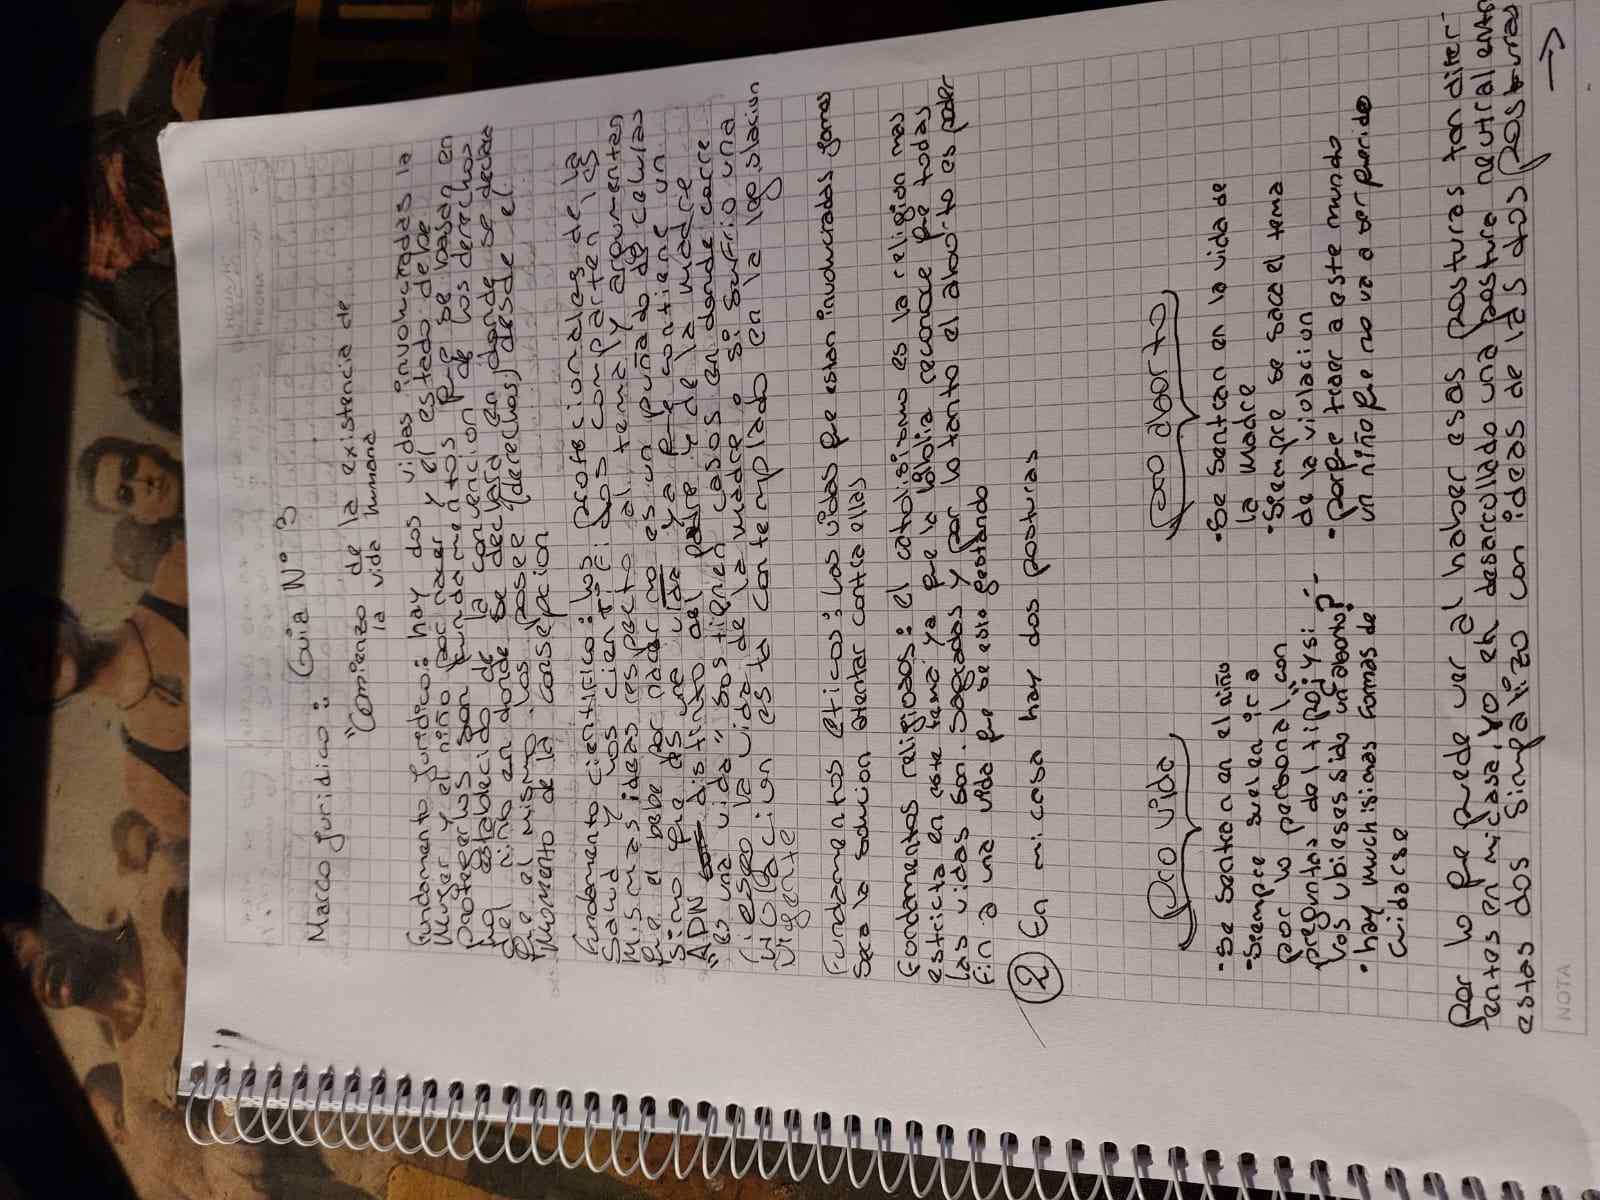 Marco Juridico: Guia N° 3
"Comienzo de la existencia de
la vida humana
Fundamento Juridico: hay dos vidas involucradas la
mujer y el niño por nacer y el estado debe
protegerlos son fundamentos que se basan en
lo establecido de la convencion de los derechos
del niño en donde se declara en donde se declara
que el mismo los posee (derechos) desde el
momento de la consepcion
Fundamento cientifico: los profesionales de la
Salud y los cientifi dos comparten las
mismas ideas respecto al tema y argumentan
que el bebe por nacer no es un puñado de celulas
sino que es una vida ya que contiene un
ADN distinto del padre y de la madre
"es una vida" sostienen casos en donde corre
riesgo la vida de la madre o si sufrio una
violacion esta contemplado en la legislacion
vigente
Fundamentos eticos: las vidas que estan involucradas jamas
sera la solucion atentar contra ellas
Fondamentos religiosos: el catolisismo es la religion mas
estricta en este tema ya que la biblia reconoce que todas
las vidas son sagradas y por lo tanto el aborto es poder
fin a una vida que se esta gestando
② En mi casa hay dos posturas
Pro vida
• Se sentra en el niño
• Siempre suelen ir a
por lo personal con
preguntas del tipo: y si
vos ubieses sido un aborto? --
• hay muchisimas formas de
cuidarse
Pro aborto
• Se sentran en la vida de
la madre
• Siempre se saca el tema
de la violacion
• porque traer a este mundo
un niño que no va a ser querido
Por lo que puede ver al haber esas posturas tan difer-
entes en mi casa, yo eh desarrollado una postura neutral entre
estas dos Simpatizo con ideas de las dos posturas
→
NOTA